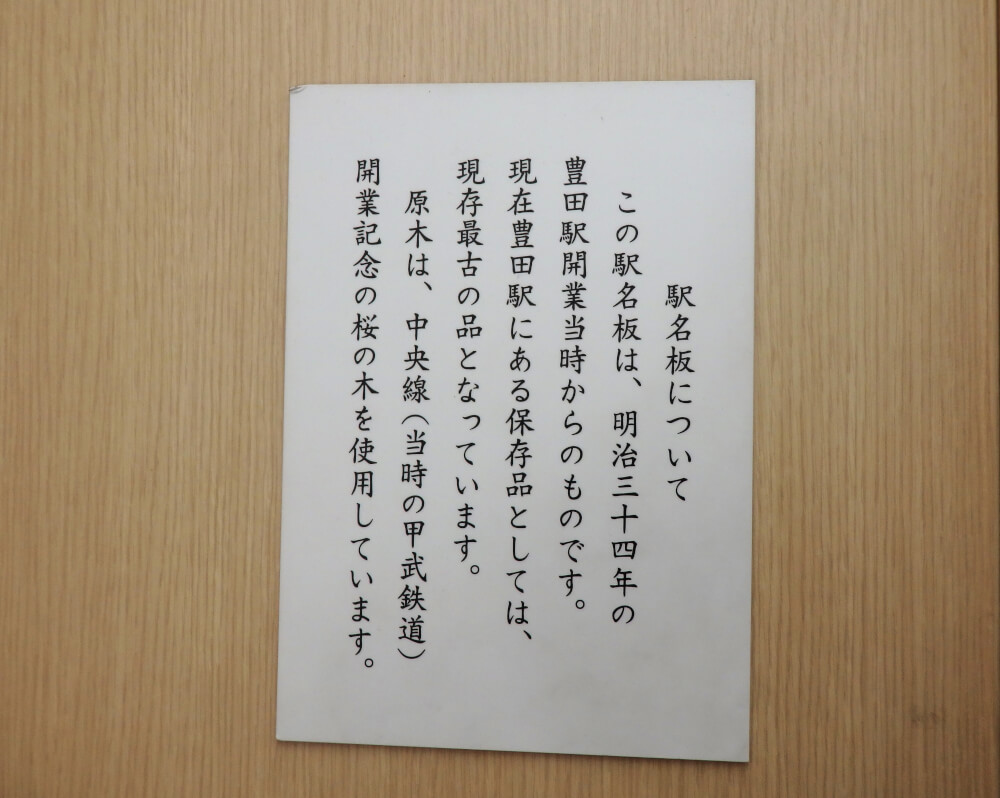 駅名板について
この駅名板は、明治三十四年の
豊田駅開業当時からのものです。
現在豊田駅にある保存品としては、
現存最古の品となっています。
原木は、中央線(当時の甲武鉄道)
開業記念の桜の木を使用しています。